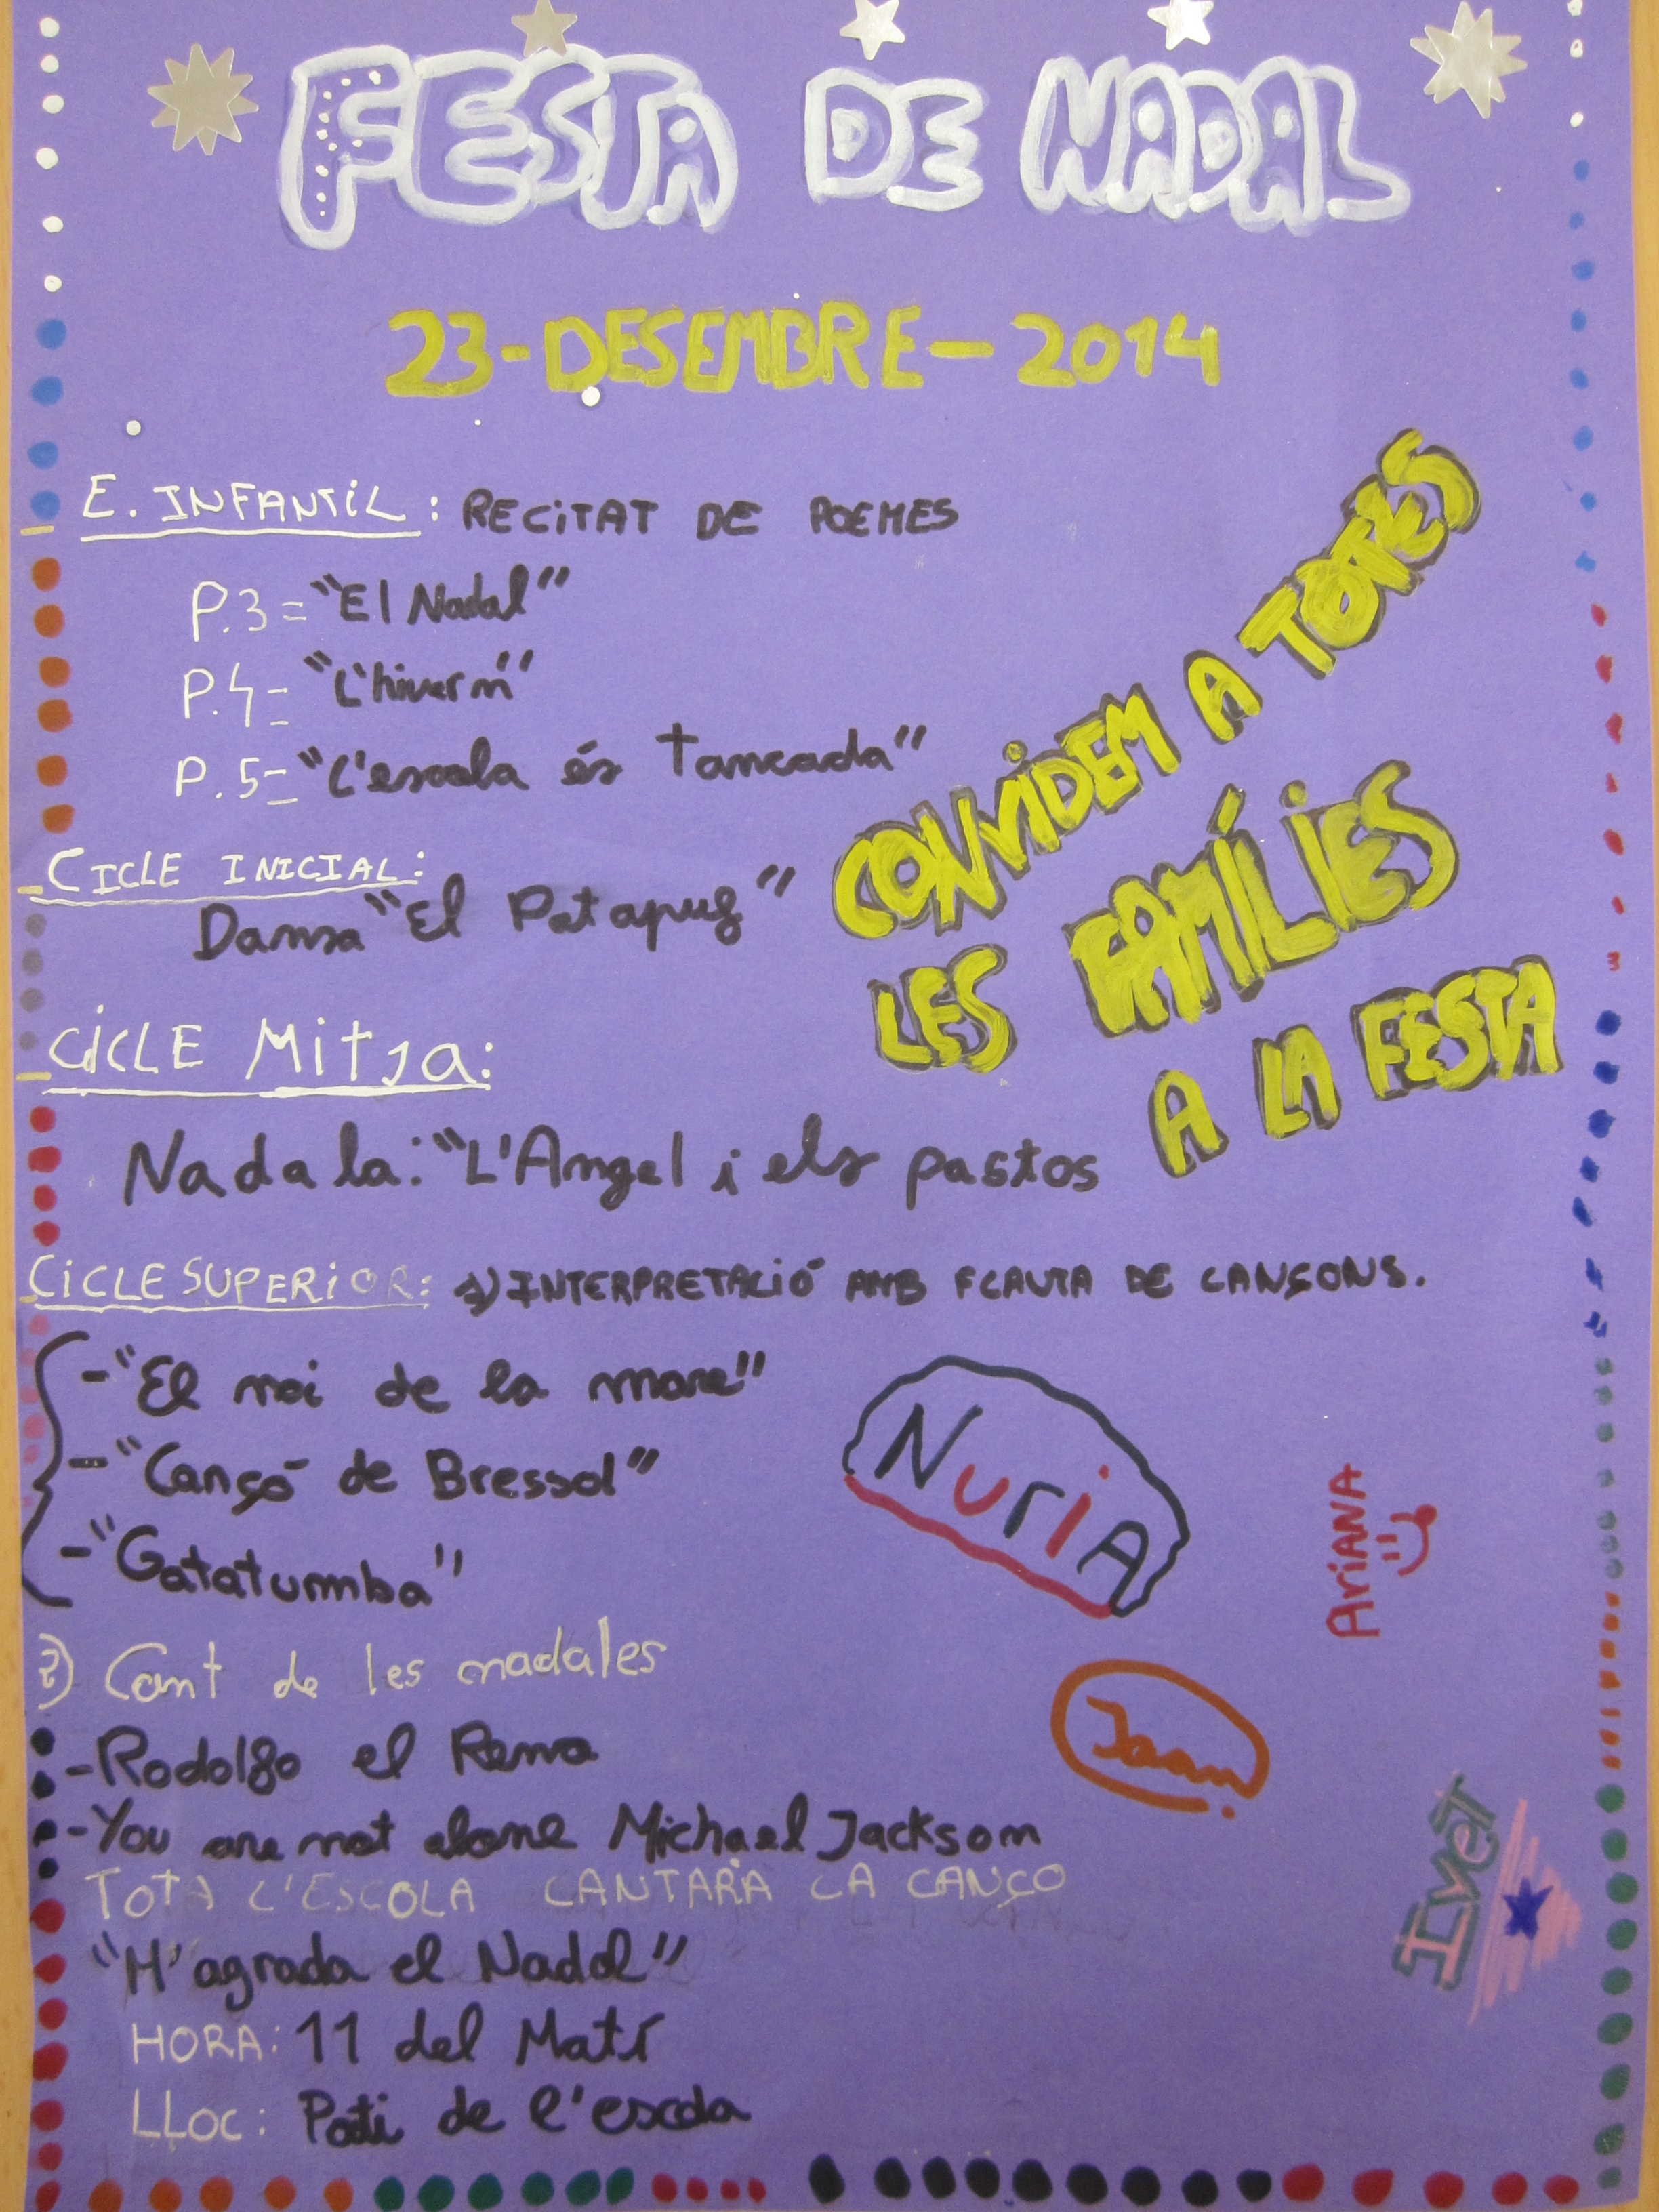 FESTA DE NADAL
23-DESEMBRE-2014
E. INFANTIL: RECITAT DE POEMES
P.3= "El Nadal"
P.4= "L'hivern"
P.5= "L'escola és Tancada"
CONVIDEM A TOTES
LES FAMÍLIES
A LA FESTA
CICLE INICIAL:
Dansa "El Patapuf"
CICLE Mitja:
Nadala: "L'Angel i els pastos
CICLE SUPERIOR: 1) INTERPRETACIÓ AMB FLAUTA DE CANÇONS.
- "El noi de la mare"
- "Cançó de Bressol"
- "Gatatumba"
NuriA
AriANA
2) Cant de les nadales
Joan
- Rodolfo el Reno
- You are not alone Michael Jackson
IveT
TOTA L'ESCOLA CANTARÀ LA CANÇO
"M'agrada el Nadal"
HORA: 11 del Matí
LLOC: Pati de l'escola